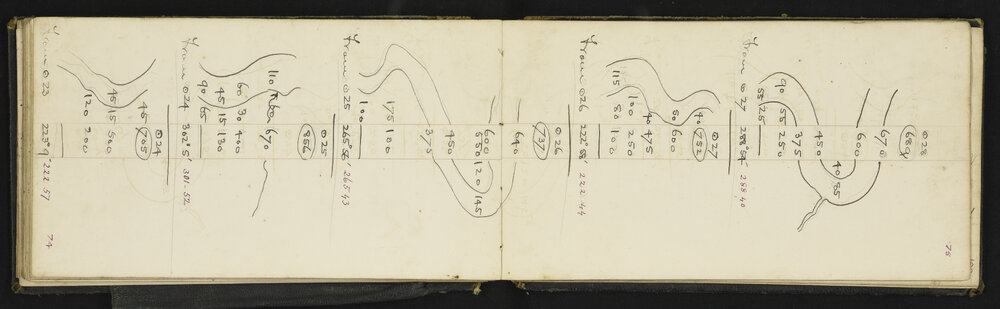 75
⊙28
689
670
600
40 85
450
375
90 55 250
55 25
From ⊙27 288°54' 288 40
⊙27
40 752
50 600
40 475
100 250
115 80 100
From ⊙26 222°58' 222 44
⊙26
737
640
600
550 120 145
450
375
175 100
100
From ⊙25 265°56' 265 43
⊙25
856
110 670
60 30 400
45 15 130
90 65
From ⊙24 302°5' 301-52
⊙24
45 705
45 15 500
120 200
From ⊙23 223°9' 222.57
74